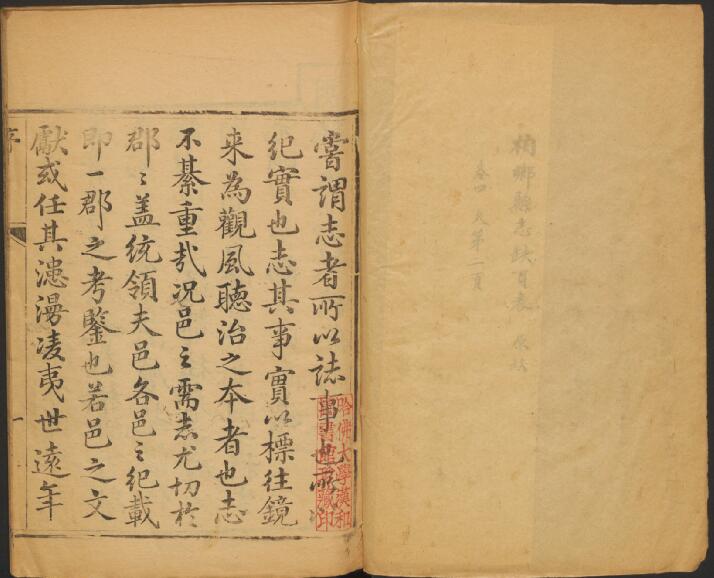 柏鄉縣志缺頁表 原缺
卷四 又第二頁
嘗謂志者所以誌事也所以
紀實也志其事實以標往鏡
来為觀風聽治之本者也志
不綦重㢤况邑之需志尤切於
郡〻盖統領夫邑各邑之紀載
即一郡之考鑒也若邑之文
獻或任其漶漫凌夷世遠年
序
一
哈佛大學漢和
圖書館珍藏印